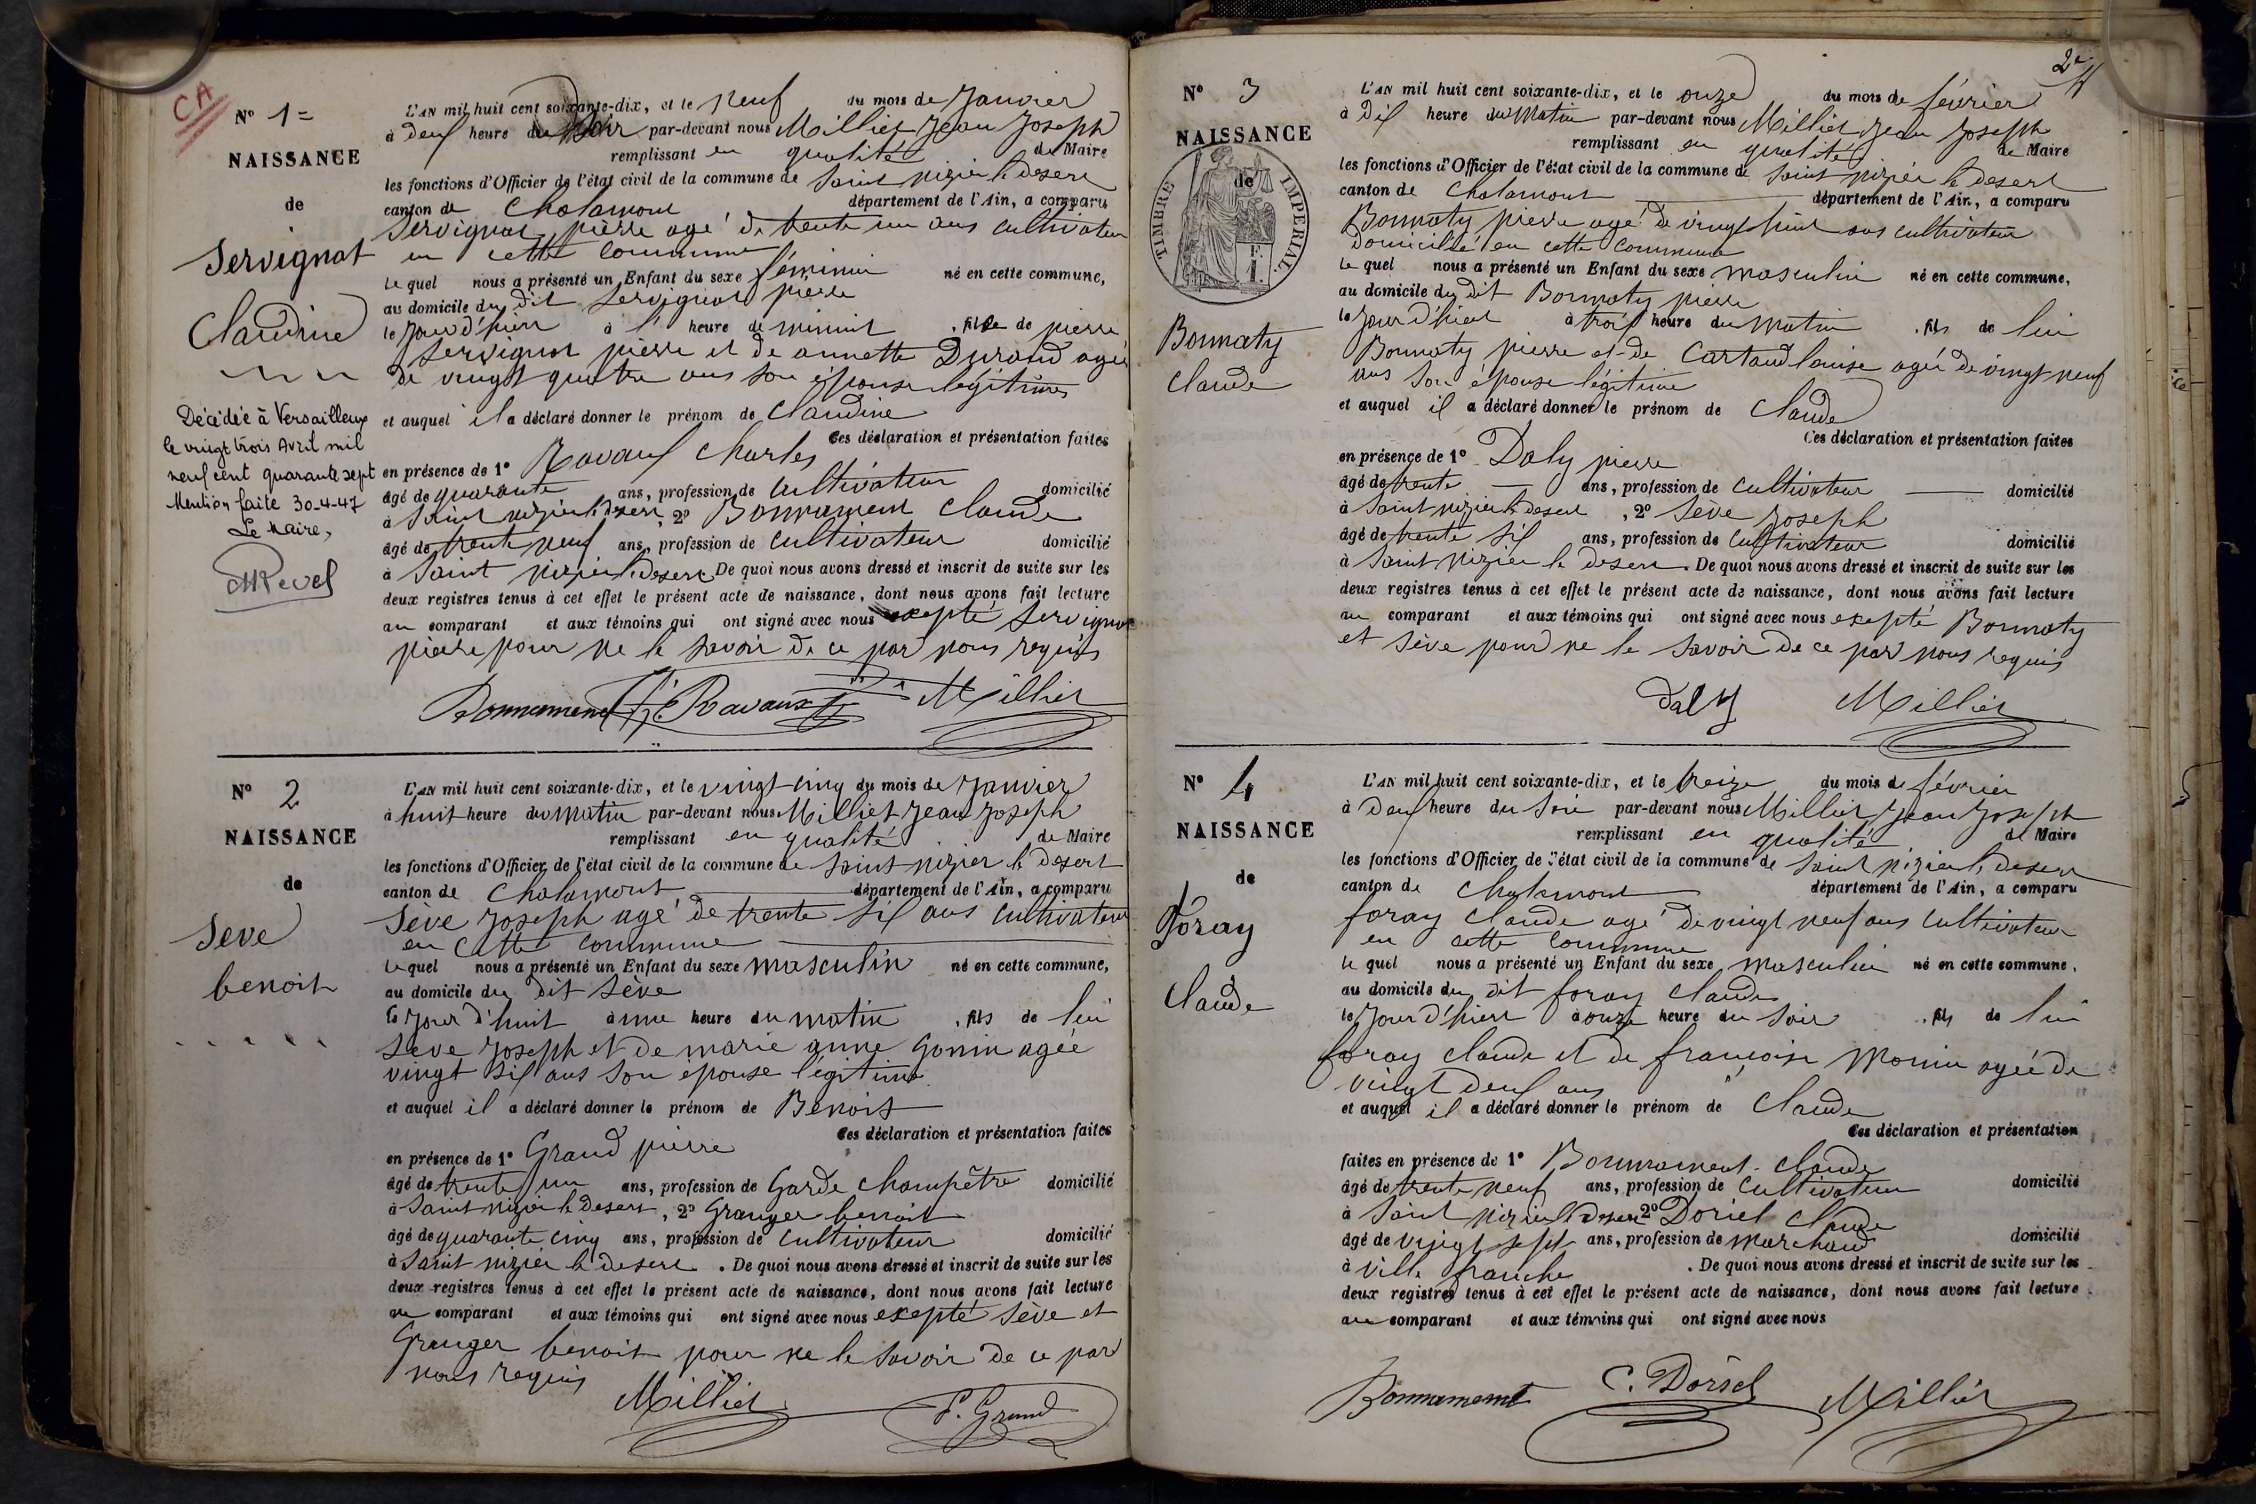 CA
N° 1=
NAISSANCE
de
Servignat
Claudine
Décédée à Versailleux
le vingt trois Avril mil
neuf cent quarante sept
Mention faite 30-4-47
Le Maire,
L'AN mil huit cent soixante-dix, et le neuf du mois de Janvier
à deux heure du soir par-devant nous Milliet Jean Joseph
remplissant en qualité de Maire
les fonctions d'Officier de l'état civil de la commune de Saint nizier le desert
canton de Chalamont département de l'Ain, a comparu
Servignat pierre agé de trente un ans cultivateur
en cette commune
Le quel nous a présenté un Enfant du sexe féminin né en cette commune,
au domicile du dit Servignat pierre
le jour d'hier à l' heure de minuit , fille de pierre
Servignat pierre et de annette Durand agée
de vingt quatre ans son épouse légitime
et auquel il a déclaré donner le prénom de Claudine
Ces déclaration et présentation faites
en présence de 1° Ravaux Charles
âgé de quarante ans, profession de cultivateur domicilié
à Saint nizier le desert, 2° Bonnament Claude
âgé de trente neuf ans, profession de cultivateur domicilié
à Saint nizier le desert De quoi nous avons dressé et inscrit de suite sur les
deux registres tenus à cet effet le présent acte de naissance, dont nous avons fait lecture
au comparant et aux témoins qui ont signé avec nous excepté Servignat
pierre pour ne le savoir de ce par nous requis
Bonnament C. Ravaux Milliet
N° 2
NAISSANCE
de
Seve
benoit
L'AN mil huit cent soixante-dix, et le vingt-cinq du mois de Janvier
à huit heure du matin par-devant nous Milliet Jean Joseph
remplissant en qualité de Maire
les fonctions d'Officier de l'état civil de la commune de Saint nizier le desert
canton de Chalamont département de l'Ain, a comparu
Sève Joseph agé de trente six ans cultivateur
en cette commune
Le quel nous a présenté un Enfant du sexe masculin né en cette commune,
au domicile du dit Sève
le jour d'huit à une heure du matin , fils de lui
Seve Joseph et de marie anne Gonin agée
vingt six ans son epouse légitime
et auquel il a déclaré donner le prénom de Benoit
Ces déclaration et présentation faites
en présence de 1° Grand pierre
âgé de trente un ans, profession de Garde champêtre domicilié
à Saint nizier le Desert, 2° Granger benoit
âgé de quarante cinq ans, profession de cultivateur domicilié
à Saint nizier le desert. De quoi nous avons dressé et inscrit de suite sur les
deux registres tenus à cet effet le présent acte de naissance, dont nous avons fait lecture
au comparant et aux témoins qui ont signé avec nous excepté Sève et
Granger benoit pour ne le savoir de ce par
nous requis
Milliet P. Grand
2e
N° 3
NAISSANCE
de
TIMBRE IMPERIAL
F.
1.
Bonnaty
Claude
L'AN mil huit cent soixante-dix, et le onze du mois de février
à Dix heure du Matin par-devant nous Milliet Jean Joseph
remplissant en qualité de Maire
les fonctions d'Officier de l'état civil de la commune de Saint nizier le desert
canton de Chalamont département de l'Ain, a comparu
Bonnaty pierre agé de vingt huit ans cultivateur
domicilié en cette commune
Le quel nous a présenté un Enfant du sexe masculin né en cette commune,
au domicile du dit Bonnaty pierre
le jour d'hier à trois heure du matin , fils de lui
Bonnaty pierre et de Cartaud louise agée de vingt neuf
ans son épouse légitime
et auquel il a déclaré donner le prénom de Claude
Ces déclaration et présentation faites
en présence de 1° Daly pierre
âgé de trente ans, profession de cultivateur domicilié
à Saint nizier le desert, 2° Sève Joseph
âgé de trente six ans, profession de cultivateur domicilié
à Saint Nizier le desert. De quoi nous avons dressé et inscrit de suite sur les
deux registres tenus à cet effet le présent acte de naissance, dont nous avons fait lecture
au comparant et aux témoins qui ont signé avec nous excepté Bonnaty
et Sève pour ne le savoir de ce par nous requis
daly Milliet
N° 4
NAISSANCE
de
Foray
Claude
L'AN mil huit cent soixante-dix, et le treize du mois de février
à deux heure du soir par-devant nous Milliet Jean Joseph
remplissant en qualité de Maire
les fonctions d'Officier de l'état civil de la commune de Saint nizier le desert
canton de Chalamont département de l'Ain, a comparu
foray Claude agé de vingt neuf ans cultivateur
en cette commune
Le quel nous a présenté un Enfant du sexe masculin né en cette commune,
au domicile du dit foray claude
le jour d'hier à onze heure du soir , fils de lui
foray claude et de françoise Monin agée de
vingt deux ans
et auquel il a déclaré donner le prénom de Claude
Ces déclaration et présentation
faites en présence de 1° Bonnament Claude
âgé de trente neuf ans, profession de cultivateur domicilié
à Saint nizier le desert 2° Doriel Claude
âgé de vingt sept ans, profession de marchand domicilié
à Ville franche . De quoi nous avons dressé et inscrit de suite sur les
deux registres tenus à cet effet le présent acte de naissance, dont nous avons fait lecture
au comparant et aux témoins qui ont signé avec nous
Bonnament C. Doriel Milliet